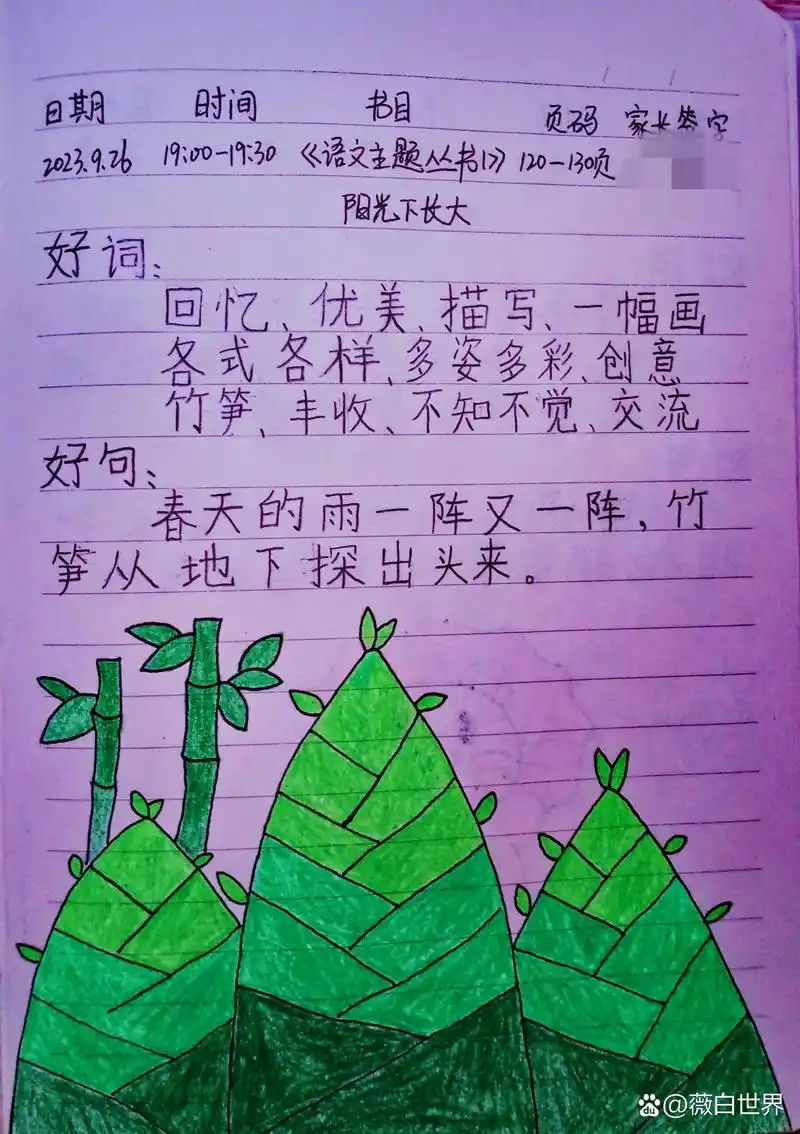 日期 时间 书目 页码 家长签字
2023.9.26 19:00-19:30 《语文主题丛书1》 120-130页
阳光下长大
好词:
回忆、优美、描写、一幅画
各式各样、多姿多彩、创意
竹笋、丰收、不知不觉、交流
好句:
春天的雨一阵又一阵,竹
笋从地下探出头来。
Bai du @薇白世界